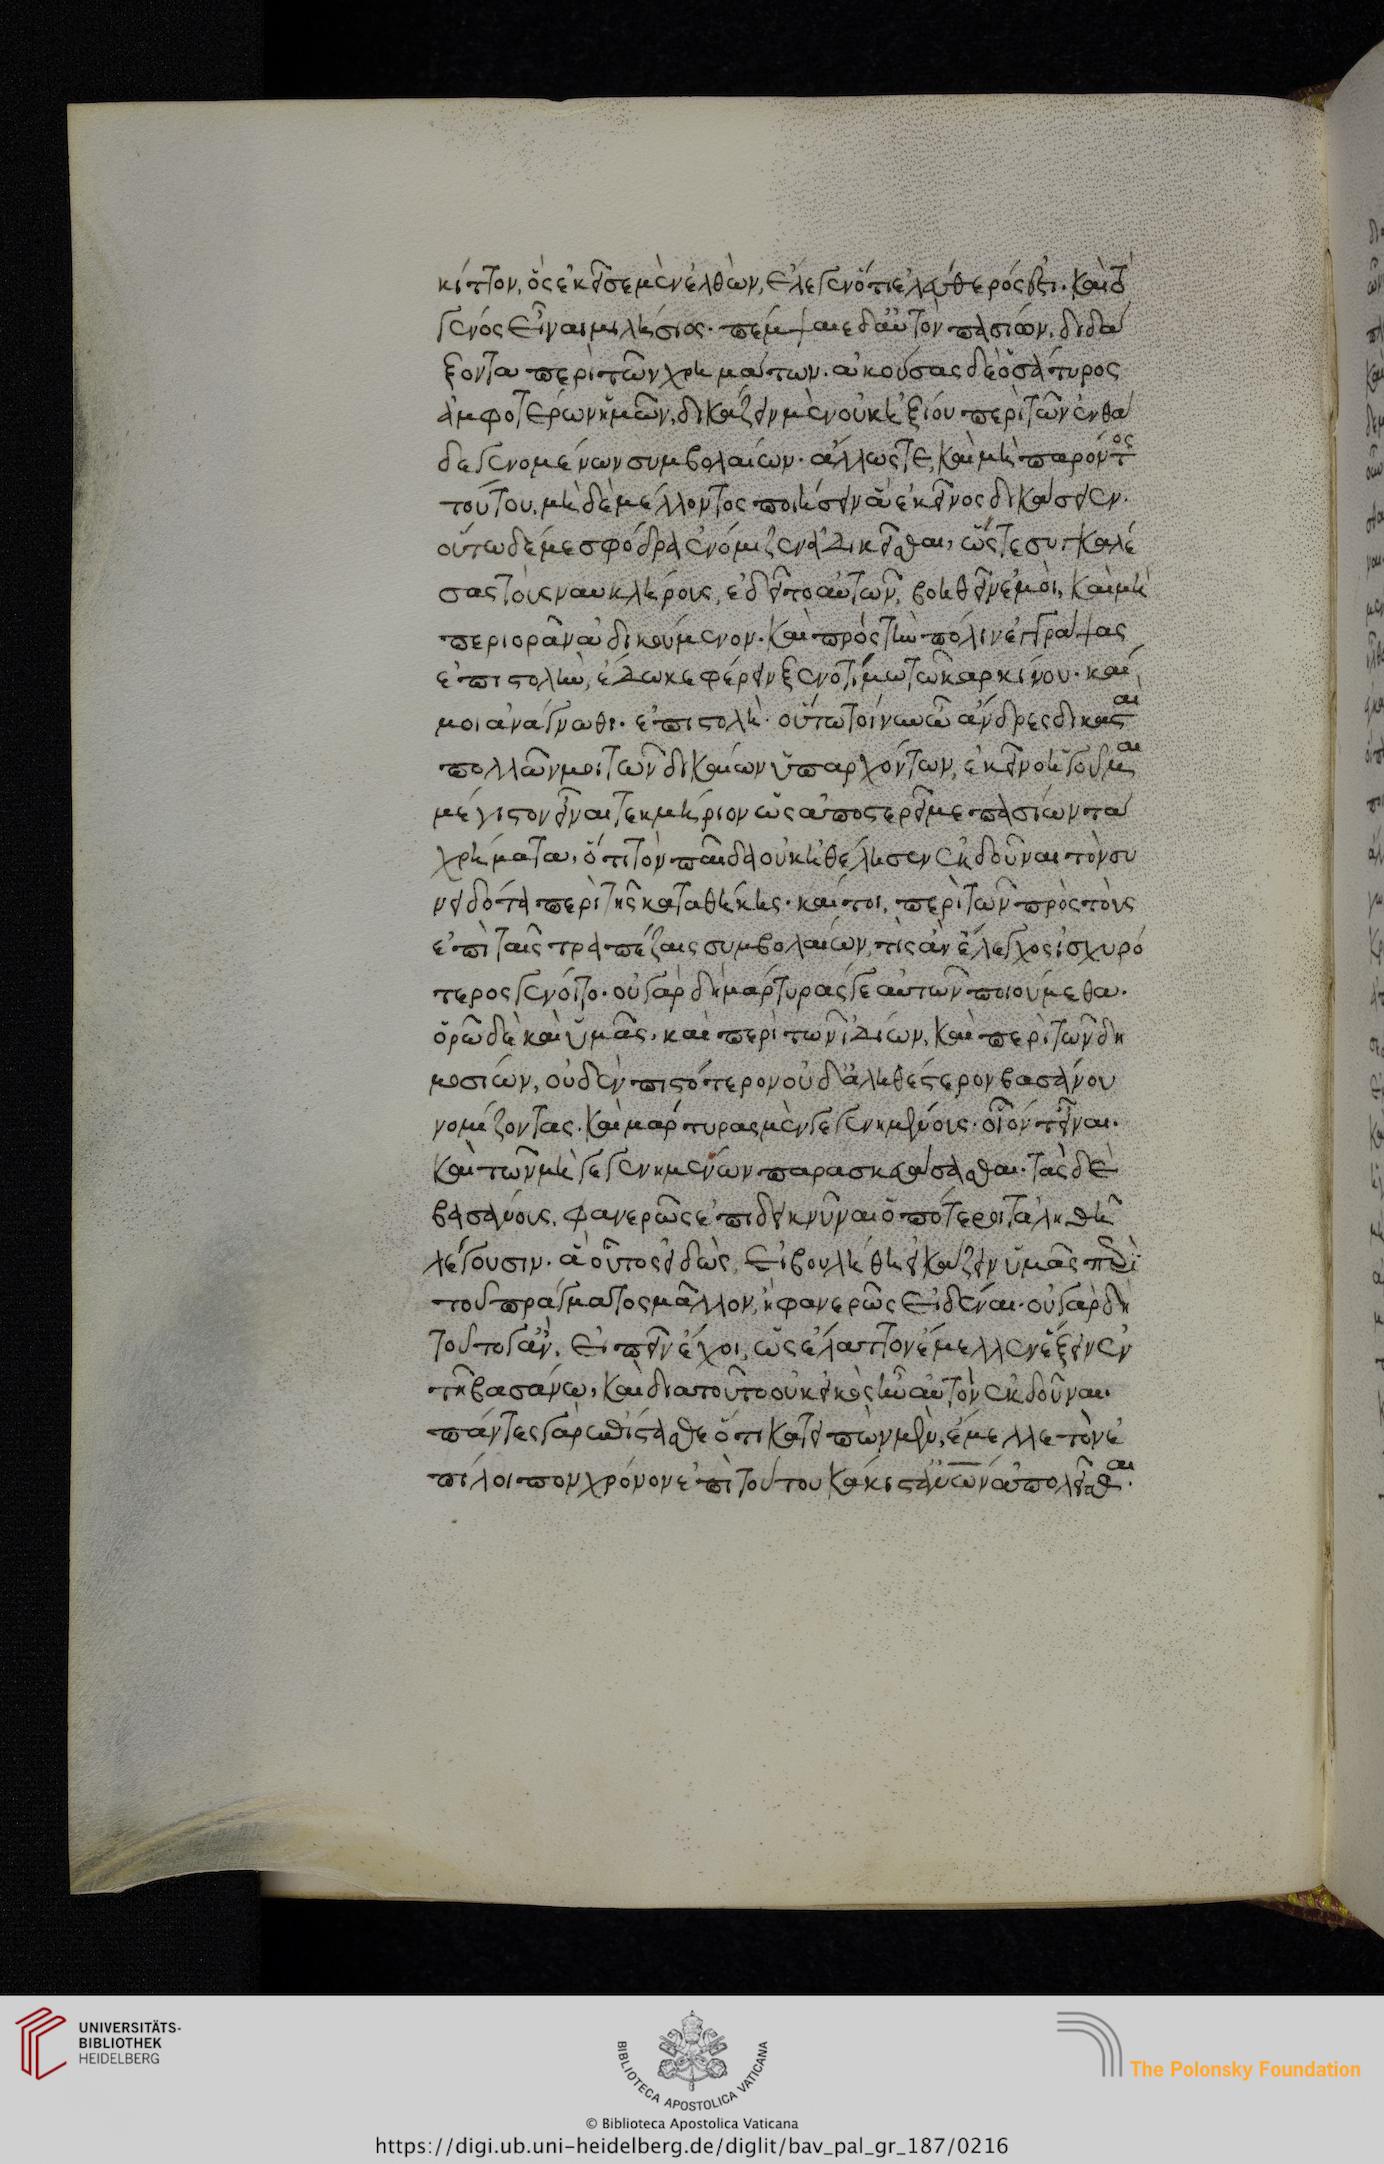 κίττον, ὃς ἐκεῖσε μὲν ἐλθὼν, ἔλεγεν ὅτι ἐλεύθερός ἐστι. καὶ τὸ
γένος εἶναι μιλήσιος. πέμψαιε δ' αὐτὸν πασιων, διδά
ξοντα περὶ τῶν χρημάτων. ἀκούσας δὲ ὁ σάτυρος
ἀμφοτέρων ἡμῶν, δικάζειν μὲν οὐκ ἠξίου περὶ τῶν ἐνθά
δε γενομένων συμβολαίων. ἄλλως τε, καὶ μὴ παρόντος
τούτου, μηδὲ μέλλοντος ποιήσειν ἃ ἐκεῖνος δικάσειεν.
οὕτω δέ με σφόδρα ἐνόμιζεν ἀδικεῖσθαι, ὥστε συγκαλέ
σας τοὺς ναυκλήρους, ἐδεῖτο αὐτῶν, βοηθεῖν ἐμοὶ, καὶ μὴ
περιορᾶν ἀδικούμενον. καὶ πρὸς τὴν πόλιν ἐγγράψας
ἐπιστολὴν, ἔδωκε φέρειν ξενοτίμω τῶ καρκίνου. καί
μοι ἀνάγνωθι. ἐπιστολὴ. οὕτω τοίνυν ὦ ἄνδρες δικασταὶ
πολλῶν μοι τῶν δικαίων ὑπαρχόντων, ἐκεῖνο ἡγοῦμαι
μέγιστον εἶναι τεκμήριον ὡς ἀποστερεῖ με πασίων τὰ
χρήματα, ὅτι τὸν παῖδα οὐκ ἠθέλησεν ἐκδοῦναι τὸν συ
νειδότα περὶ τῆς καταθήκης. καίτοι, περὶ τῶν πρὸς τοὺς
ἐπὶ ταῖς τραπέζαις συμβολαίων, τίς ἂν ἔλεγχος ἰσχυρό
τερος γένοιτο. οὐ γὰρ δὴ μάρτυράς γε αὐτῶν ποιούμεθα.
ὁρῶ δὲ καὶ ὑμᾶς, καὶ περὶ τῶν ἰδίων, καὶ περὶ τῶν δη
μοσίων, οὐδὲν πιστότερον οὐδ' ἀληθέστερον βασάνου
νομίζοντας. καὶ μάρτυρας μὲν γεγενημένους. οἷόν τ' εἶναι.
καὶ τῶν μὴ γεγενημένων παρασκευάσασθαι. τὰς δὲ
βασάνους, φανερῶς ἐπιδεικνῦναι ὁπότεροι τἀληθῆ
λέγουσιν. ἃ οὗτος εἰδὼς, ἐβουλήθη εἰκάζειν ὑμᾶς περὶ
τοῦ πράγματος μᾶλλον, ἢ φανερῶς εἰδέναι. οὐ γὰρ δὴ
τοῦτο γ' ἂν, εἰπεῖν ἔχοι, ὡς ἔλαττον ἔμελλεν ἕξειν ἐν
τῆ βασάνω, καὶ διατοῦτο οὐκ εἰκὸς ἦν αὐτὸν ἐκδοῦναι.
πάντες γὰρ ἐπίστασθε ὅτι κατειπὼν μὲν, ἔμελλε τὸν ἐ
πίλοιπον χρόνον ἐπὶ τούτου κάκιστ' ἀνθρώπων ἀπολεῖσθαι.
UNIVERSITÄTS-
BIBLIOTHEK
HEIDELBERG
BIBLIOTECA APOSTOLICA VATICANA
The Polonsky Foundation
© Biblioteca Apostolica Vaticana
https://digi.ub.uni-heidelberg.de/diglit/bav_pal_gr_187/0216